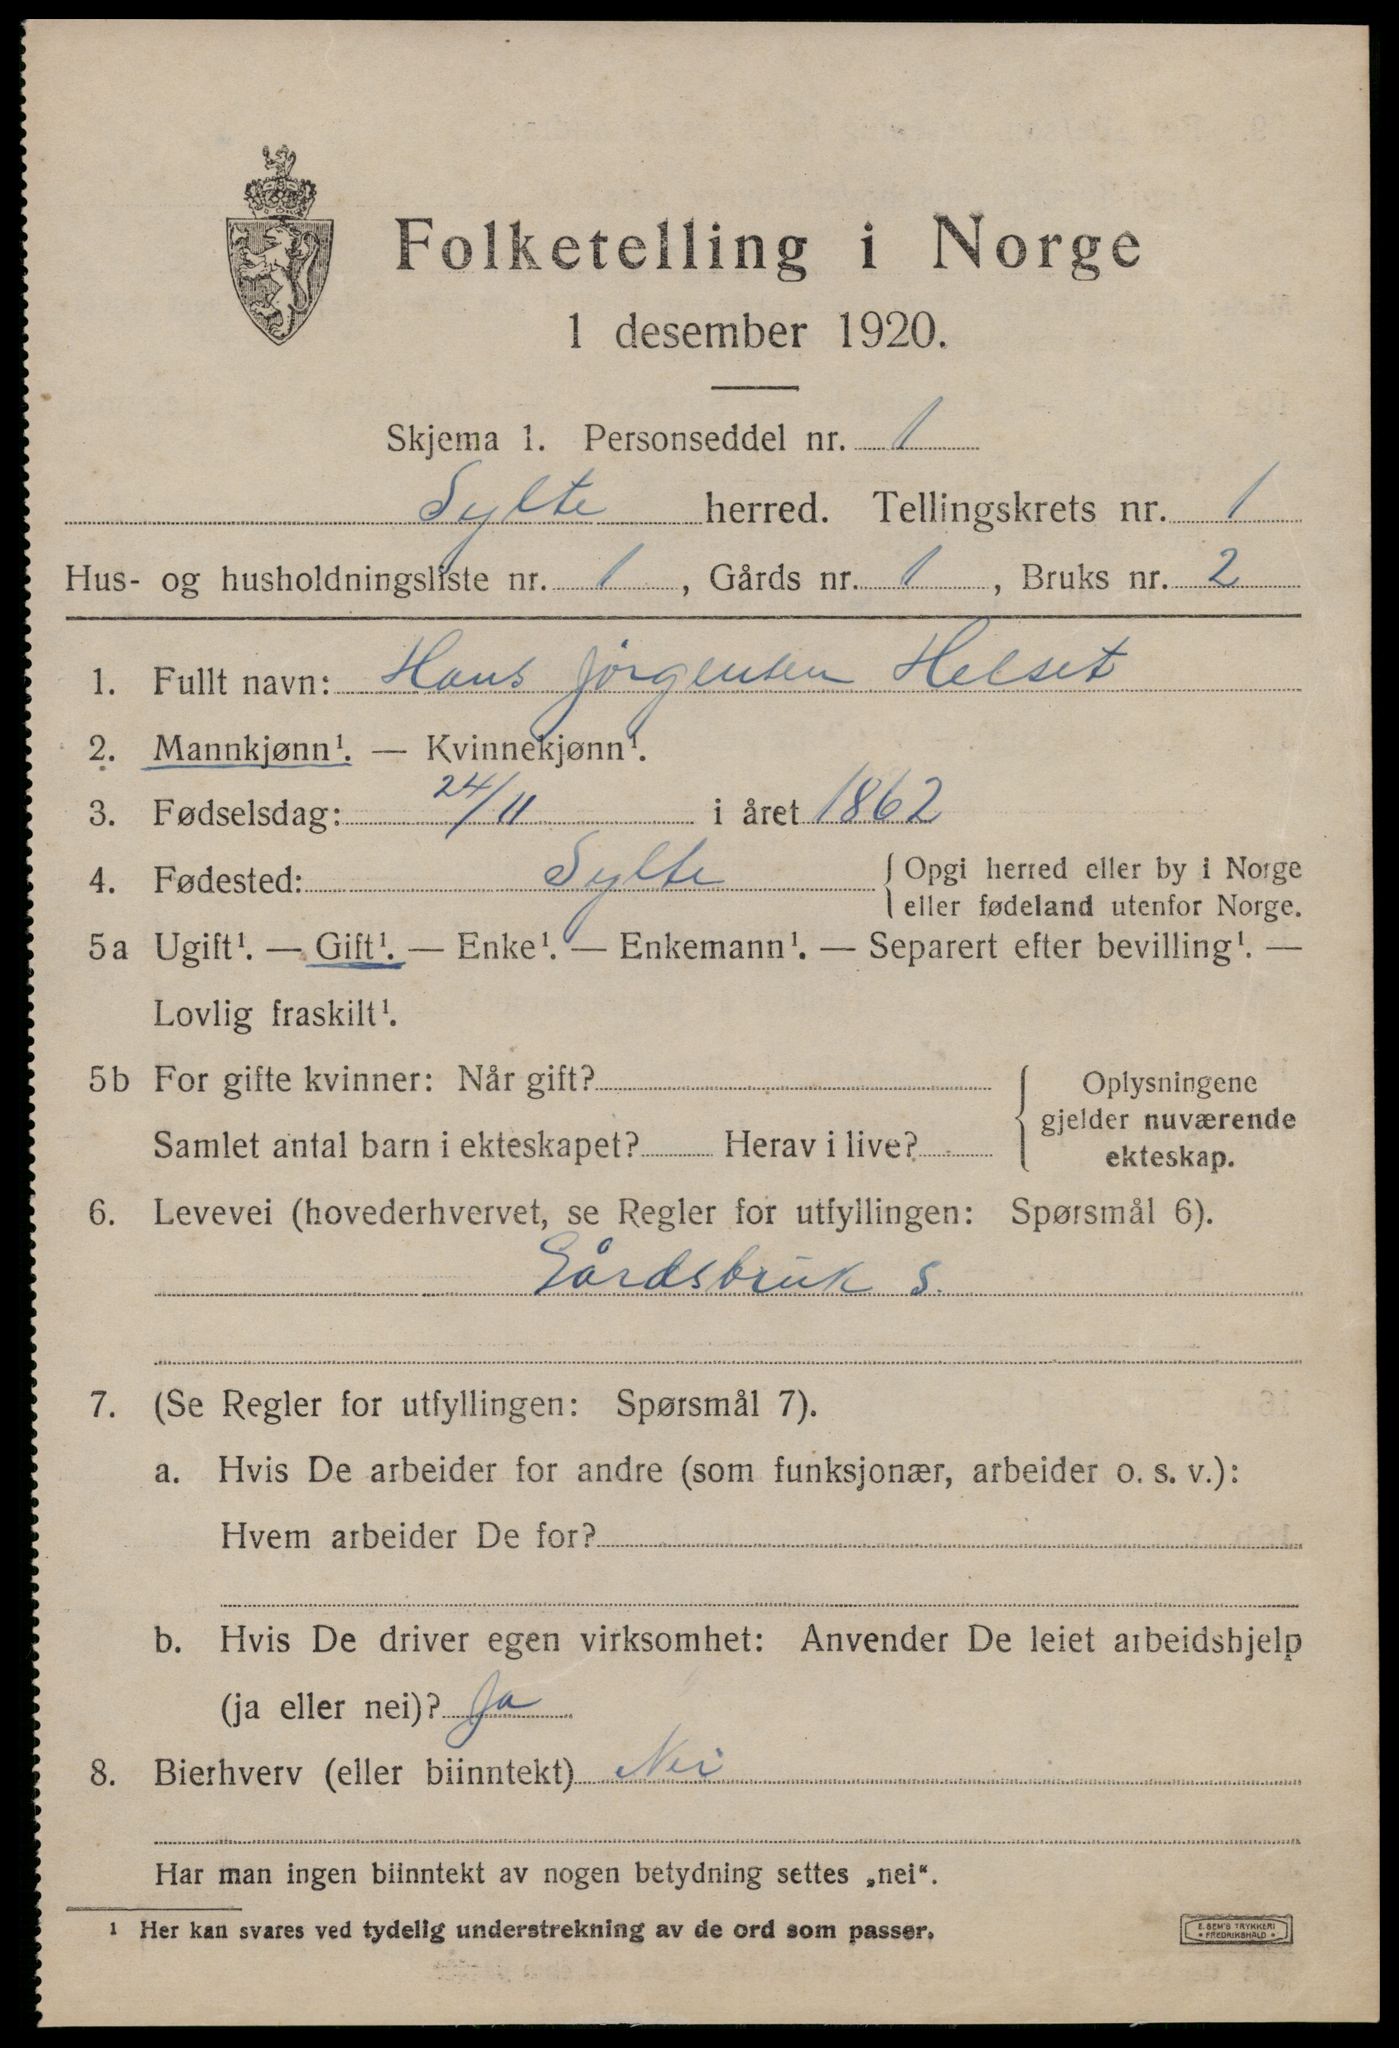 Folketelling i Norge
1 desember 1920.
Skjema 1. Personseddel nr. 1
Sylte herred. Tellingskrets nr. 1
Hus- og husholdningsliste nr. 1, Gårds nr. 1, Bruks nr. 2
1. Fullt navn: Hans Jörgensen Helset
2. Mannkjønn¹. — Kvinnekjønn¹.
3. Fødselsdag: 24/11 i året 1862
4. Fødested: Sylte { Opgi herred eller by i Norge
eller fødeland utenfor Norge.
5a Ugift¹. — Gift¹. — Enke¹. — Enkemann¹. — Separert efter bevilling¹. —
Lovlig fraskilt¹.
5b For gifte kvinner: Når gift? { Oplysningene
gjelder nuværende
Samlet antal barn i ekteskapet? Herav i live? ekteskap.
6. Levevei (hovederhvervet, se Regler for utfyllingen: Spørsmål 6).
Gårdsbruk s.
7. (Se Regler for utfyllingen: Spørsmål 7).
a. Hvis De arbeider for andre (som funksjonær, arbeider o. s. v.):
Hvem arbeider De for?
b. Hvis De driver egen virksomhet: Anvender De leiet arbeidshjelp
(ja eller nei)? Ja
8. Bierhverv (eller biinntekt) Nei
Har man ingen biinntekt av nogen betydning settes „nei“.
¹ Her kan svares ved tydelig understrekning av de ord som passer.
E. SEM'S TRYKKERI
* FREDRIKSHALD *